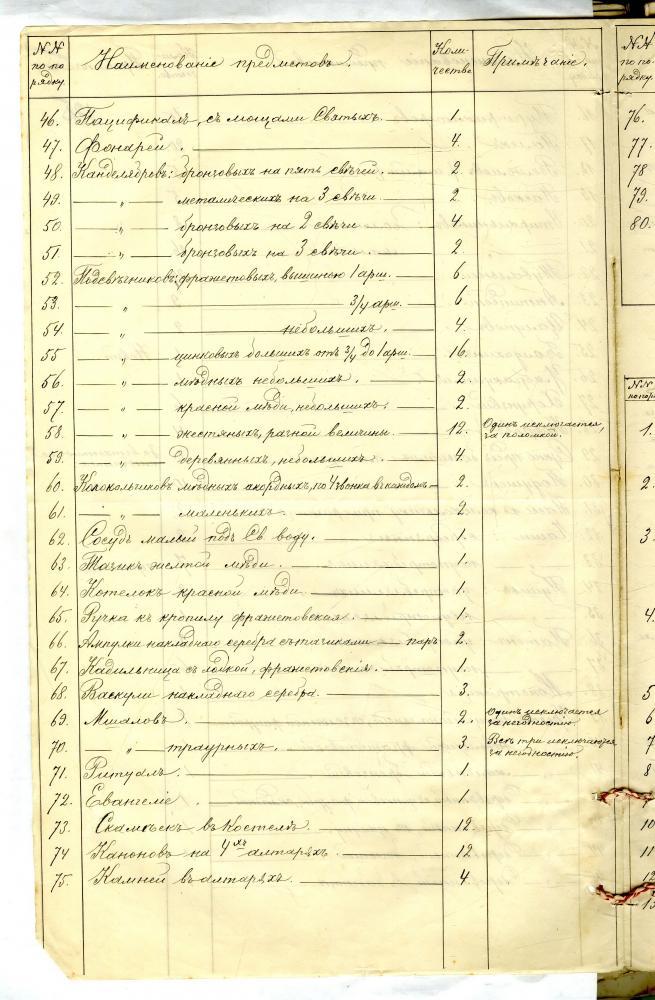 №№ по по рядку. Наименованіе предметовъ. Коли-чество Примѣчаніе.
46. Пацификалъ, съ мощами Святыхъ. 1.
47. Фонарей. 4.
48. Канделябровъ: бронзовыхъ на пять свѣчей. 2.
49. — „ — металическихъ на 3 свѣчи. 2
50. — „ — бронзовыхъ на 2 свѣчи 4
51. — „ — бронзовыхъ на 3 свѣчи. 2.
52. Подсвѣчниковъ: фражетовыхъ, вышиною 1 арш. 6.
53. „ 3/4 арш. 6
54 — „ — небольшихъ. 4.
55 — „ — цинковыхъ большихъ отъ 3/4 до 1 арш. 16.
56. — „ — мѣдныхъ небольшихъ. 2.
57. — „ — красной мѣди, небольшихъ. 2.
58. — „ — жестяныхъ, разной величины. 12. Одинъ исключается, за поломкой.
59. — „ — деревянныхъ, небольшихъ. 4.
60. Колокольчиковъ мѣдныхъ акордныхъ, по 4 звонка въ каждомъ 2.
61. — „ — маленькихъ 2
62. Сосудъ малый подъ Св воду. 1.
63. Тазикъ желтой мѣди. 1.
64. Котелокъ красной мѣди. 1.
65. Ручка къ кропилу фражетовская. 1.
66. Ампулки накладнаго серебра съ тачиками — паръ 2.
67. Кадильница съ лодкой, фражетовскія. 1.
68. Васкули накладнаго серебра. 3.
69. Мшаловъ. 2. Одинъ исключается за негодностію.
70. — „ — траурныхъ. 3. Всѣ три исключаются за негодностію.
71. Ритуалъ. 1.
72. Евангеліе. 1.
73. Скамѣекъ въ Костелѣ. 12
74 Каноновъ на 4хъ алтаряхъ. 12
75. Камней въ алтаряхъ. 4.
№№ по по рядку.
76.
77.
78
79.
80.
№№ по поря
1.
2.
3.
4.
5
6
7
8
10
11
12
13